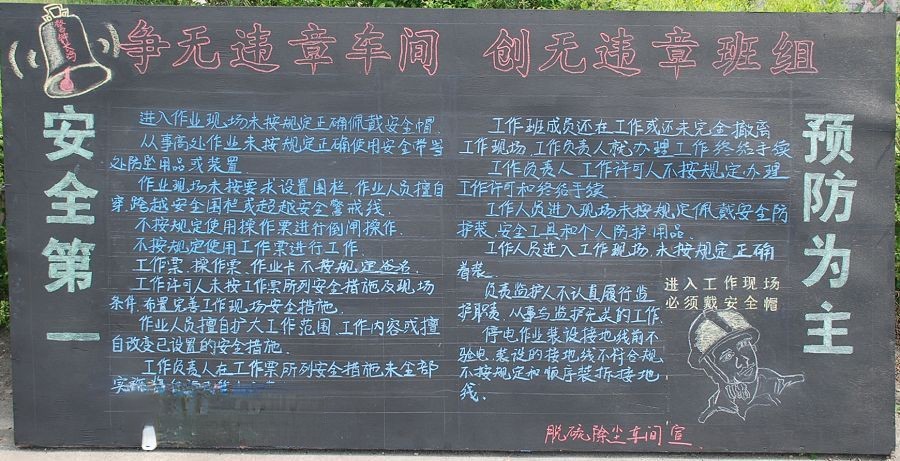 警钟长鸣
争无违章车间 创无违章班组
安全第一
进入作业现场未按规定正确佩戴安全帽.
从事高处作业未按规定正确使用安全带等
处防坠用品或装置.
作业现场未按要求设置围栏.作业人员擅自
穿.跨越安全围栏或超越安全警戒线.
不按规定使用操作票进行倒闸操作.
不按规定使用工作票进行工作.
工作票.操作票.作业卡不按规定签名.
工作许可人未按工作票所列安全措施及现场
条件.布置完善工作现场安全措施.
作业人员擅自扩大工作范围.工作内容或擅
自改变已设置的安全措施.
工作负责人在工作票所列安全措施未全部
实施
工作班成员还在工作或还未完全撤离
工作现场.工作负责人就办理工作终结手续
工作负责人.工作许可人不按规定办理
工作许可和终结手续
工作人员进入现场未按规定佩戴安全防
护装.安全工具和个人防护用品.
工作人员进入工作现场.未按规定正确
着装.
负责监护人不认真履行监
护职责.从事与监护无关的工作.
停电作业装设接地线前不
验电.装设的接地线不符合规.
不按规定和顺序装拆接地
线.
进入工作现场
必须戴安全帽
预防为主
脱硫除尘车间 宣